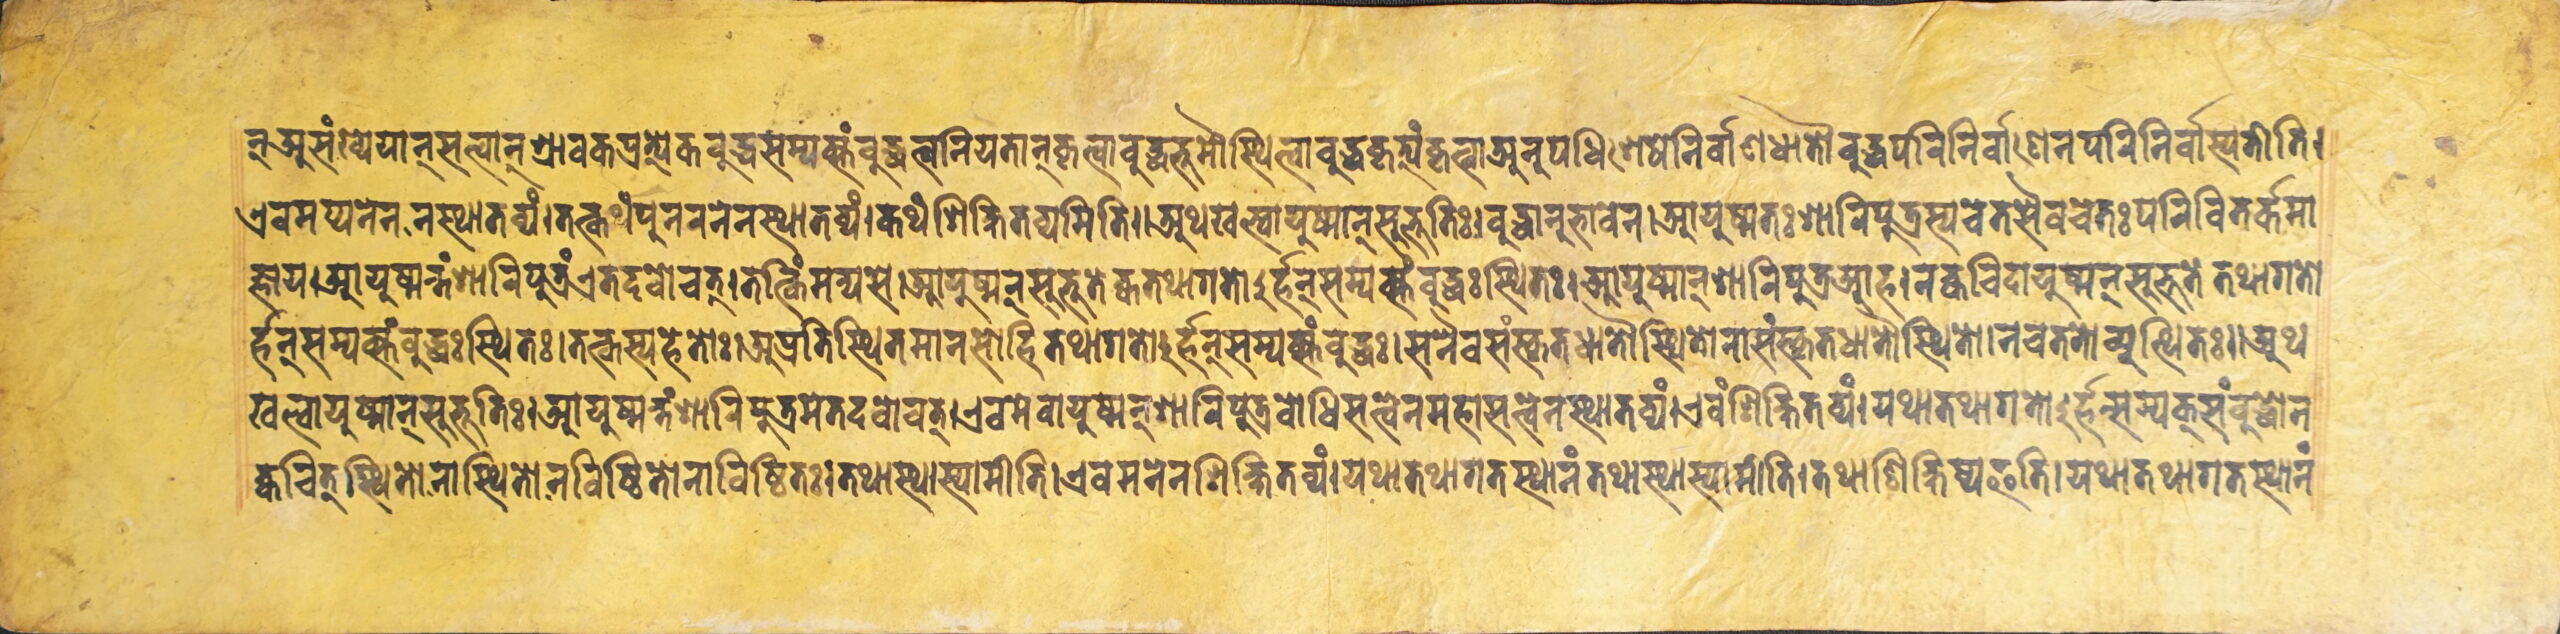 न्असंख्येयान्सत्वान्श्रावकप्रत्येकबुद्धसम्यक्संबुद्धत्वनियतान्कृत्वाबुद्धभूमौस्थित्वाबुद्धकृत्यंकृत्वाअनुपधिशेषेनिर्वाणधातौबुद्धपरिनिर्वाणेनपरिनिर्वास्यतीति।
एवमप्यनेननस्थातव्यं।तत्कथंपुनरनेनस्थातव्यं।कथंशिक्षितव्यमिति॥अथखल्वायुष्मान्सुभूतिः।बुद्धानुभावेन।आयुष्मतःशारिपुत्रस्यचेतसैवचेतःपरिवितर्कमा
ज्ञाय।आयुष्मन्तंशारिपुत्रंएतदवोचत्।तत्किंमन्यसे।आयुष्मन्सुभूतेक्वतथागतोऽर्हन्सम्यक्संबुद्धःस्थितः।आयुष्मान्शारिपुत्रआह।नक्वचिदायुष्मन्सुभूतेतथागतो
र्हन्सम्यक्संबुद्धःस्थितः।तत्कस्यहेतोः।अप्रतिस्थितमानसोहितथागतोऽर्हन्सम्यक्संबुद्धः।सनैवसंस्कृतधातौस्थितोनासंस्कृतधातौस्थितो।नचततोव्युत्थितः॥अथ
खल्वायुष्मान्सुभूतिः।आयुष्मन्तंशारिपुत्रमेतदवोचत्।एवमेवायुष्मन्शारिपुत्रबोधिसत्त्वेनमहासत्त्वेनस्थातव्यं।एवंशिक्षितव्यं।यथातथागतोऽर्हन्सम्यक्संबुद्धोन
क्वचित्स्थितोनास्थितोनविष्ठितोनाविष्ठितः।तथास्थास्यामीति।एवमनेनशिक्षितव्यं।यथातथागतस्थानंतथास्थास्यामीति।तथाशिक्षिष्यइति।यथातथागतस्थानं